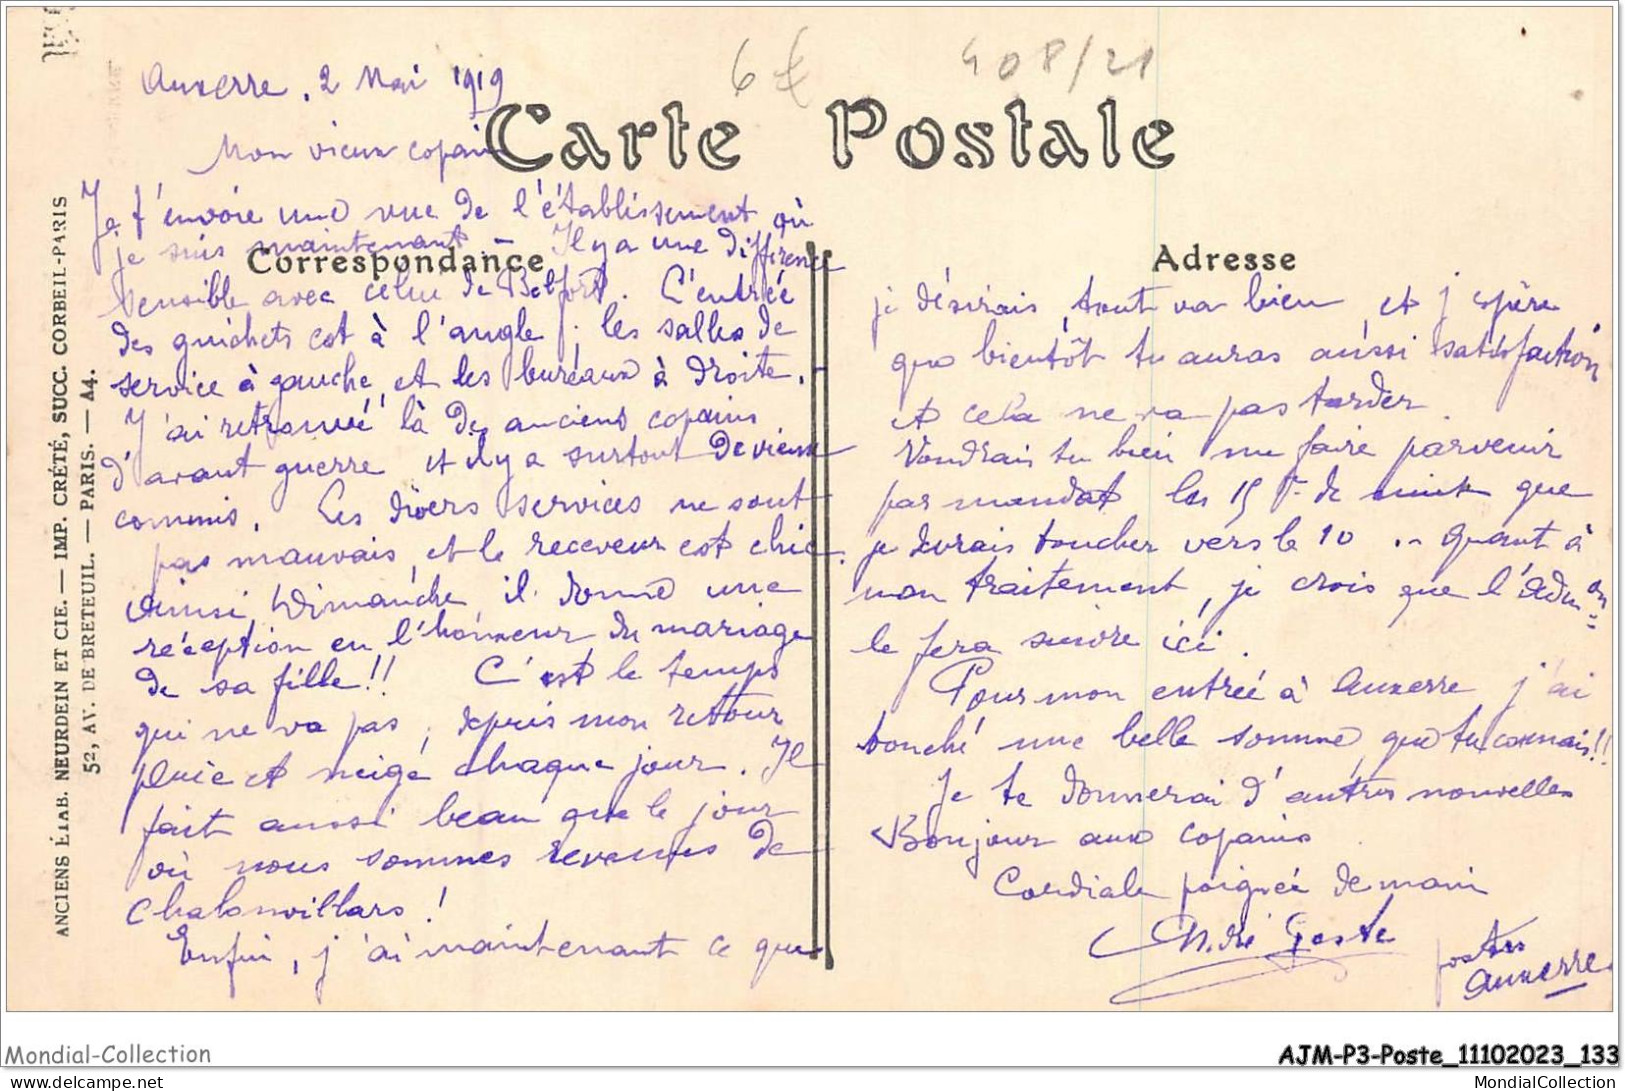 6€
408/21
Auxerre, 2 Mai 1919
Carte Postale
Mon vieux copain
Je t'envoie une vue de l'établissement où
je suis maintenant – Il y a une différence
Correspondance
sensible avec celui de Belfort. L'entrée
des guichets est à l'angle ; les salles de
service à gauche, et les bureaux à droite.
J'ai retrouvé là des anciens copains
d'avant guerre et il y a surtout de vieux
commis. Les divers services ne sont
pas mauvais, et le receveur est chic.
Ainsi Dimanche, il donne une
réception en l'honneur du mariage
de sa fille!! C'est le temps
qui ne va pas, depuis mon retour
pluie et neige chaque jour. Il
fait aussi beau que le jour
où nous sommes revenus de
Chalonvillars !
Enfin, j'ai maintenant ce que
Adresse
je désirais, tout va bien et j'espère
que bientôt tu auras aussi satisfaction
et cela ne va pas tarder.
Voudrais tu bien me faire parvenir
par mandat les 15 F. de que
je devrais toucher vers le 10 .– Quant à
mon traitement, je crois que l'Admon
le fera suivre ici.
Pour mon entrée à Auxerre j'ai
touché une belle somme, que tu connais!!
Je te donnerai d'autres nouvelles
Bonjour aux copains
Cordiale poignée de main
André
postes
Auxerre
ANCIENS ÉTAB. NEURDEIN ET CIE. — IMP. CRÉTÉ, SUCC. CORBEIL-PARIS
52, AV. DE BRETEUIL. — PARIS. — A4.
Mondial-Collection
AJM-P3-Poste_11102023_133
delcampe.net
MondialCollection